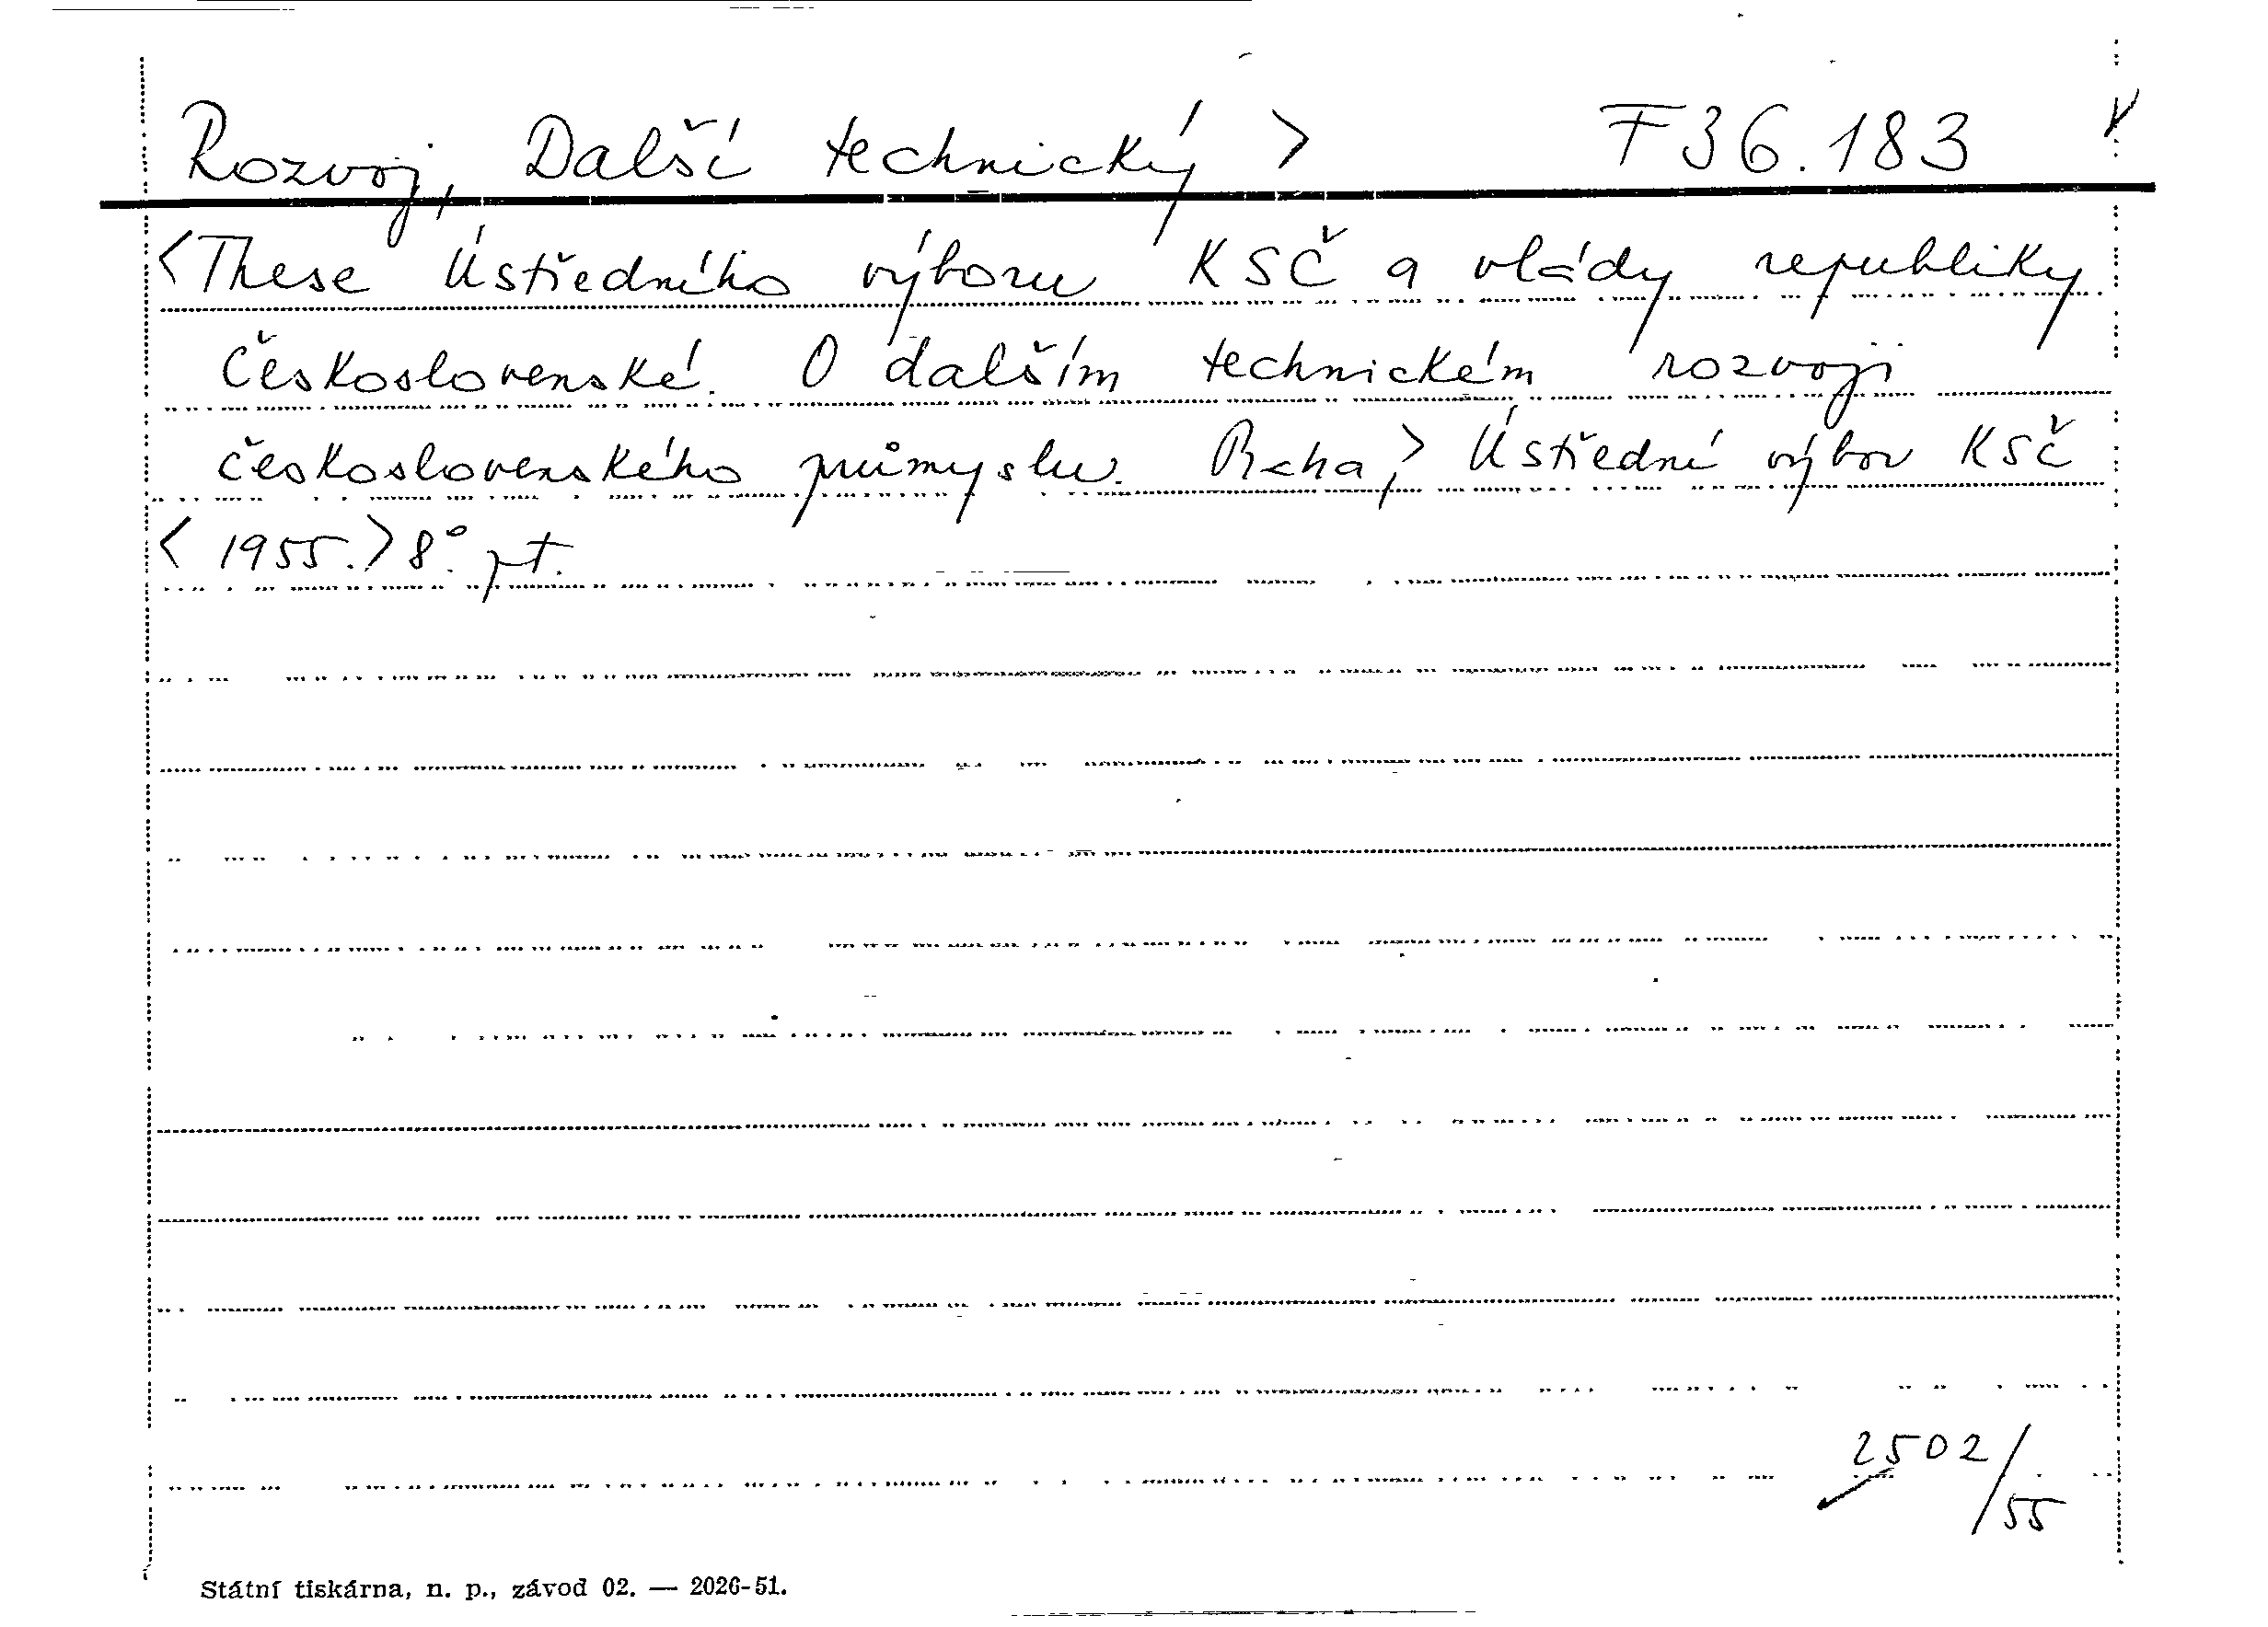 Rozvoj, Další technický > F 36.183
<These Ústředního výboru KSČ a vlády republiky
Československé. O dalším technickém rozvoji
československého průmyslu. Praha,> Ústřední výbor KSČ
< 1955.> 8° pt.
2502/55
Státní tiskárna, n. p., závod 02. — 2026-51.